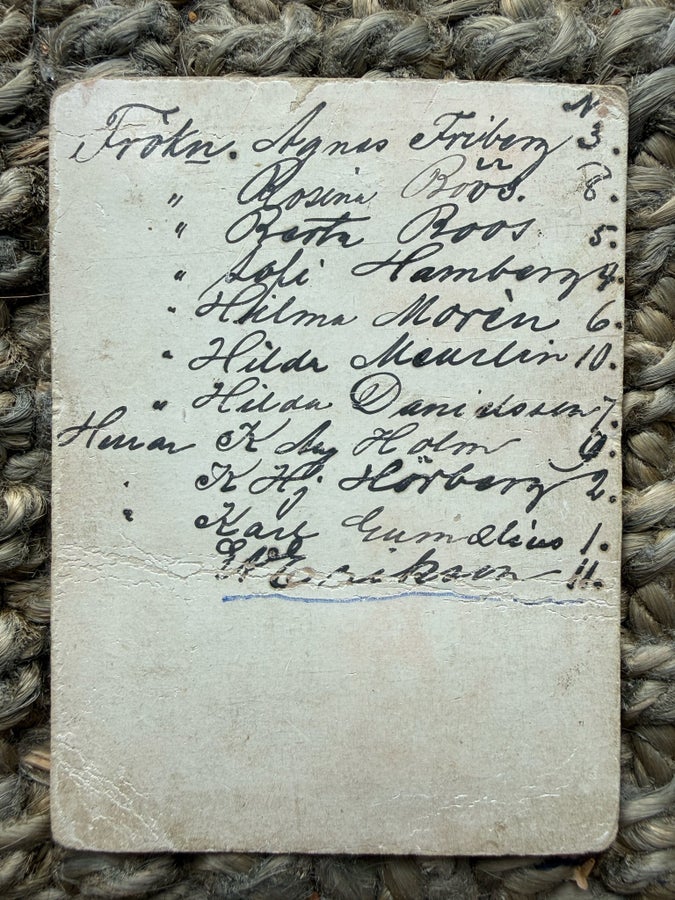 N
Frökn. Agnes Friberg 3.
" Rosina Böös. 8.
" Berta Roos 5.
" Sofi Hamberg 4.
" Hilma Morèn 6.
" Hilda Meurlin 10.
" Hilda Danielsson 7.
Herrar K Aug Holm 9.
" K Hj Hörberg 2.
" Karl Gumælius 1.
Erikson 11.